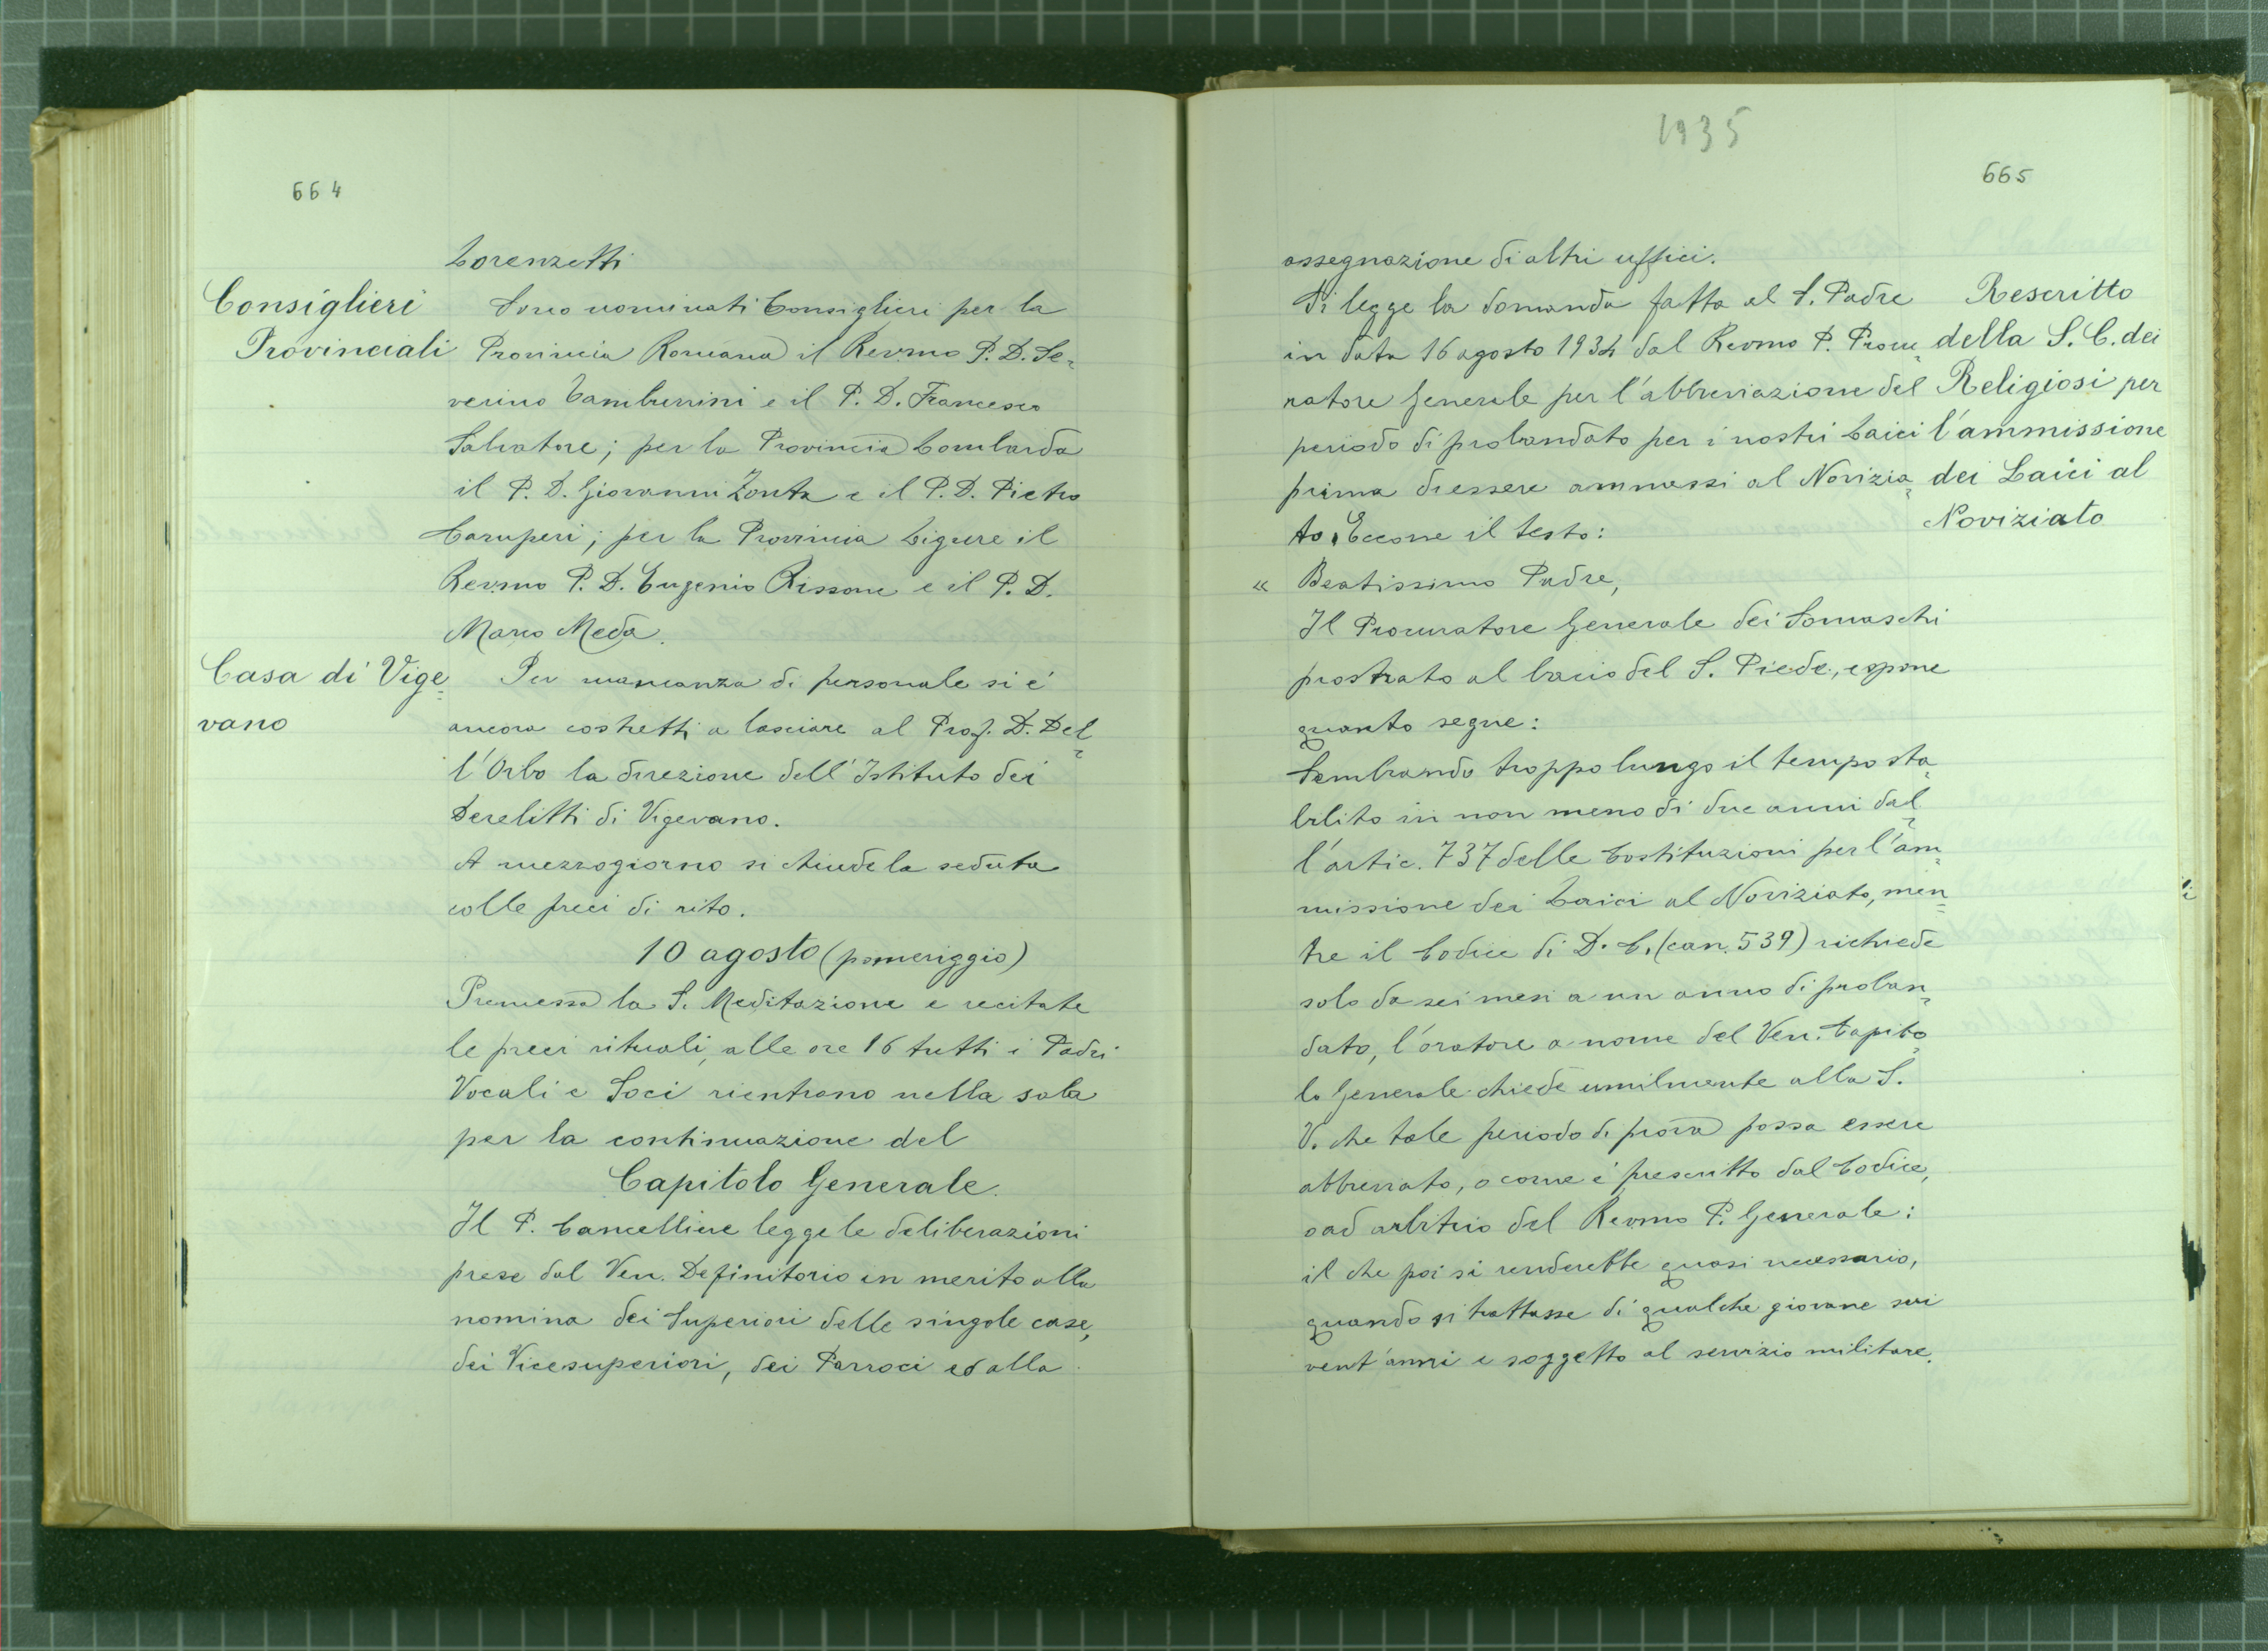 664
Lorenzetti
Consiglieri
Provinciali
Sono nominati Consiglieri per la
Provincia Romana il Rev.mo P. D. Se=
verino Tamburrini e il P. D. Francesco
Salvatore; per la Provincia Lombarda
il P. D. Giovanni Zonta e il P. D. Pietro
Camperi; per la Provincia Ligure il
Rev.mo P. D. Eugenio Rissone e il P. D.
Marco Meda.
Casa di Vige=
vano
Per mancanza di personale si è
ancora costretti a lasciare al Prof. D. Del=
l'Orbo la direzione dell'Istituto dei
Derelitti di Vigevano.
A mezzogiorno si chiude la seduta
colle preci di rito.
10 agosto (pomeriggio)
Premessa la S. Meditazione e recitate
le preci rituali, alle ore 16 tutti i Padri
Vocali e Soci rientrano nella sala
per la continuazione del
Capitolo Generale.
Il P. Cancelliere legge le deliberazioni
prese dal Ven. Definitorio in merito alla
nomina dei Superiori delle singole case,
dei Vicesuperiori, dei Parroci ed alla
1935
665
assegnazione di altri uffici.
Si legge la domanda fatta al S. Padre
in data 16 agosto 1934 dal Rev.mo P. Procu=
ratore Generale per l'abbreviazione del
periodo di probandato per i nostri Laici
prima di essere ammessi al Novizia=
to. Eccone il testo:
Rescritto
della S. C. dei
Religiosi per
l'ammissione
dei Laici al
Noviziato
« Beatissimo Padre,
Il Procuratore Generale dei Somaschi
prostrato al bacio del S. Piede, espone
quanto segue:
Sembrando troppo lungo il tempo sta=
bilito in non meno di due anni dal=
l'artic. 737 delle Costituzioni per l'am=
missione dei Laici al Noviziato, men=
tre il Codice di D. C. (can. 539) richiede
solo da sei mesi a un anno di proban=
dato, l'oratore a nome del Ven. Capito=
lo Generale chiede umilmente alla S.
V. che tale periodo di prova possa essere
abbreviato, o come è prescritto dal Codice,
o ad arbitrio del Rev.mo P. Generale:
il che poi si renderebbe quasi necessario,
quando si trattasse di qualche giovane sui
vent'anni e soggetto al servizio militare.